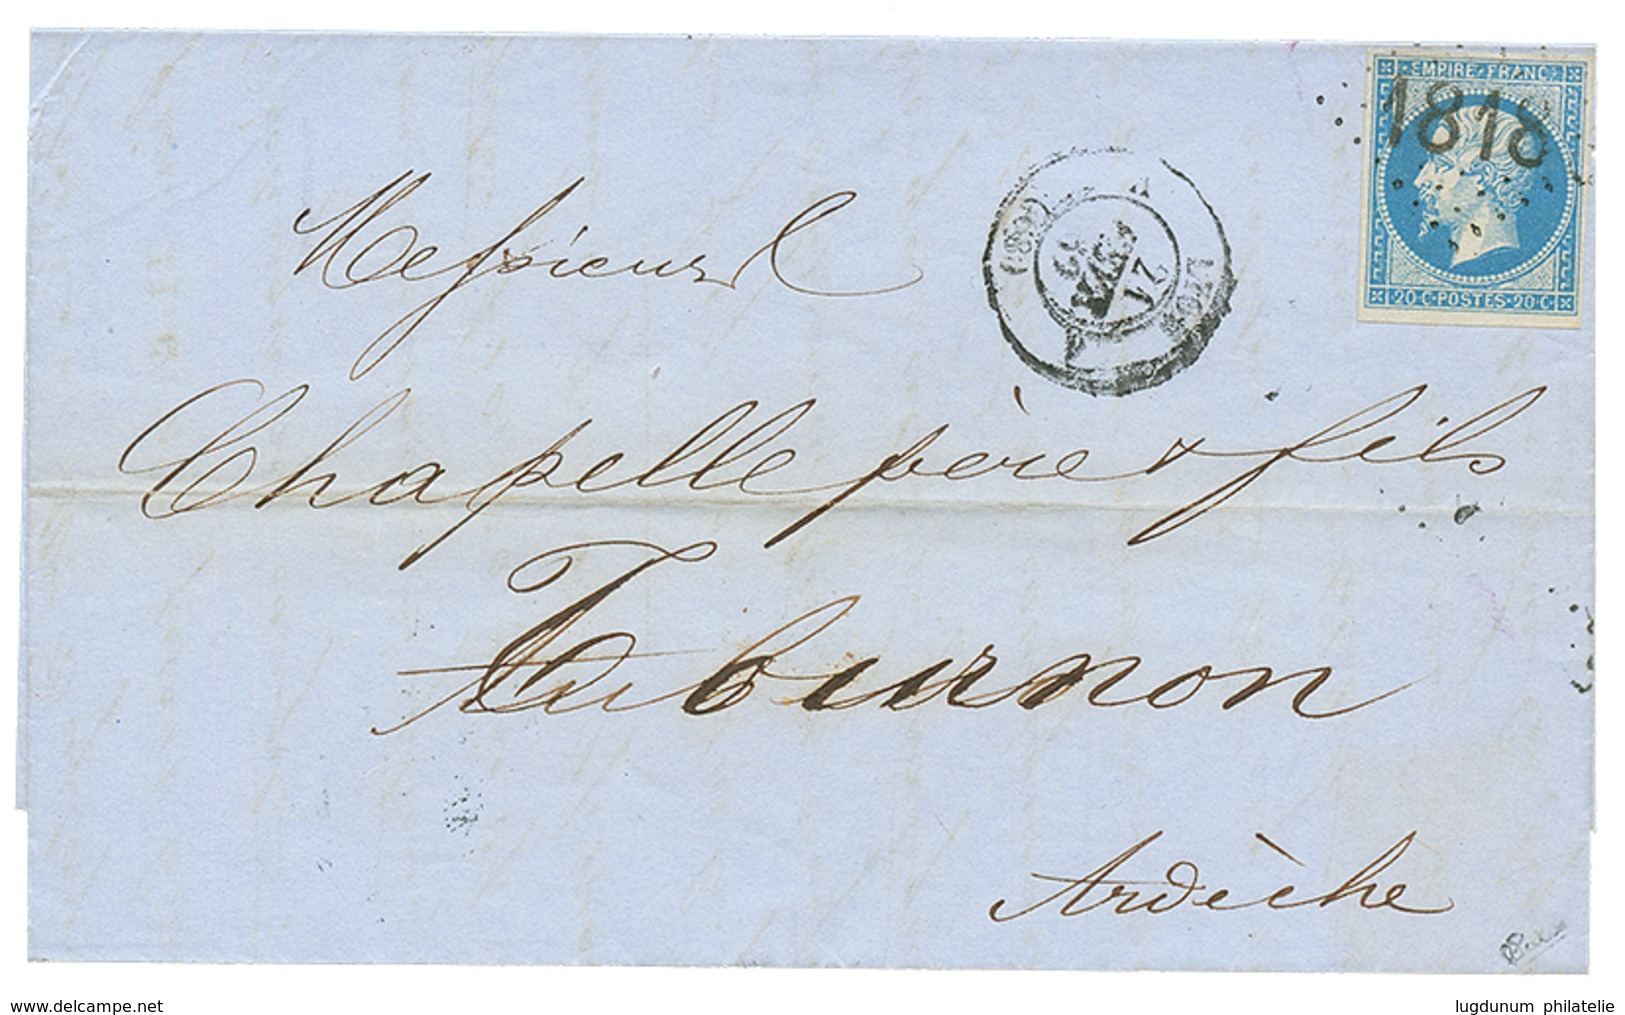 EMPIRE FRANC.
1818
20 C. POSTES 20 C.
LYON
(68)
MARS
Messieurs
Chapelle père & fils
Tournon
Ardèche
www.delcampe.net
lugdunum philatelie